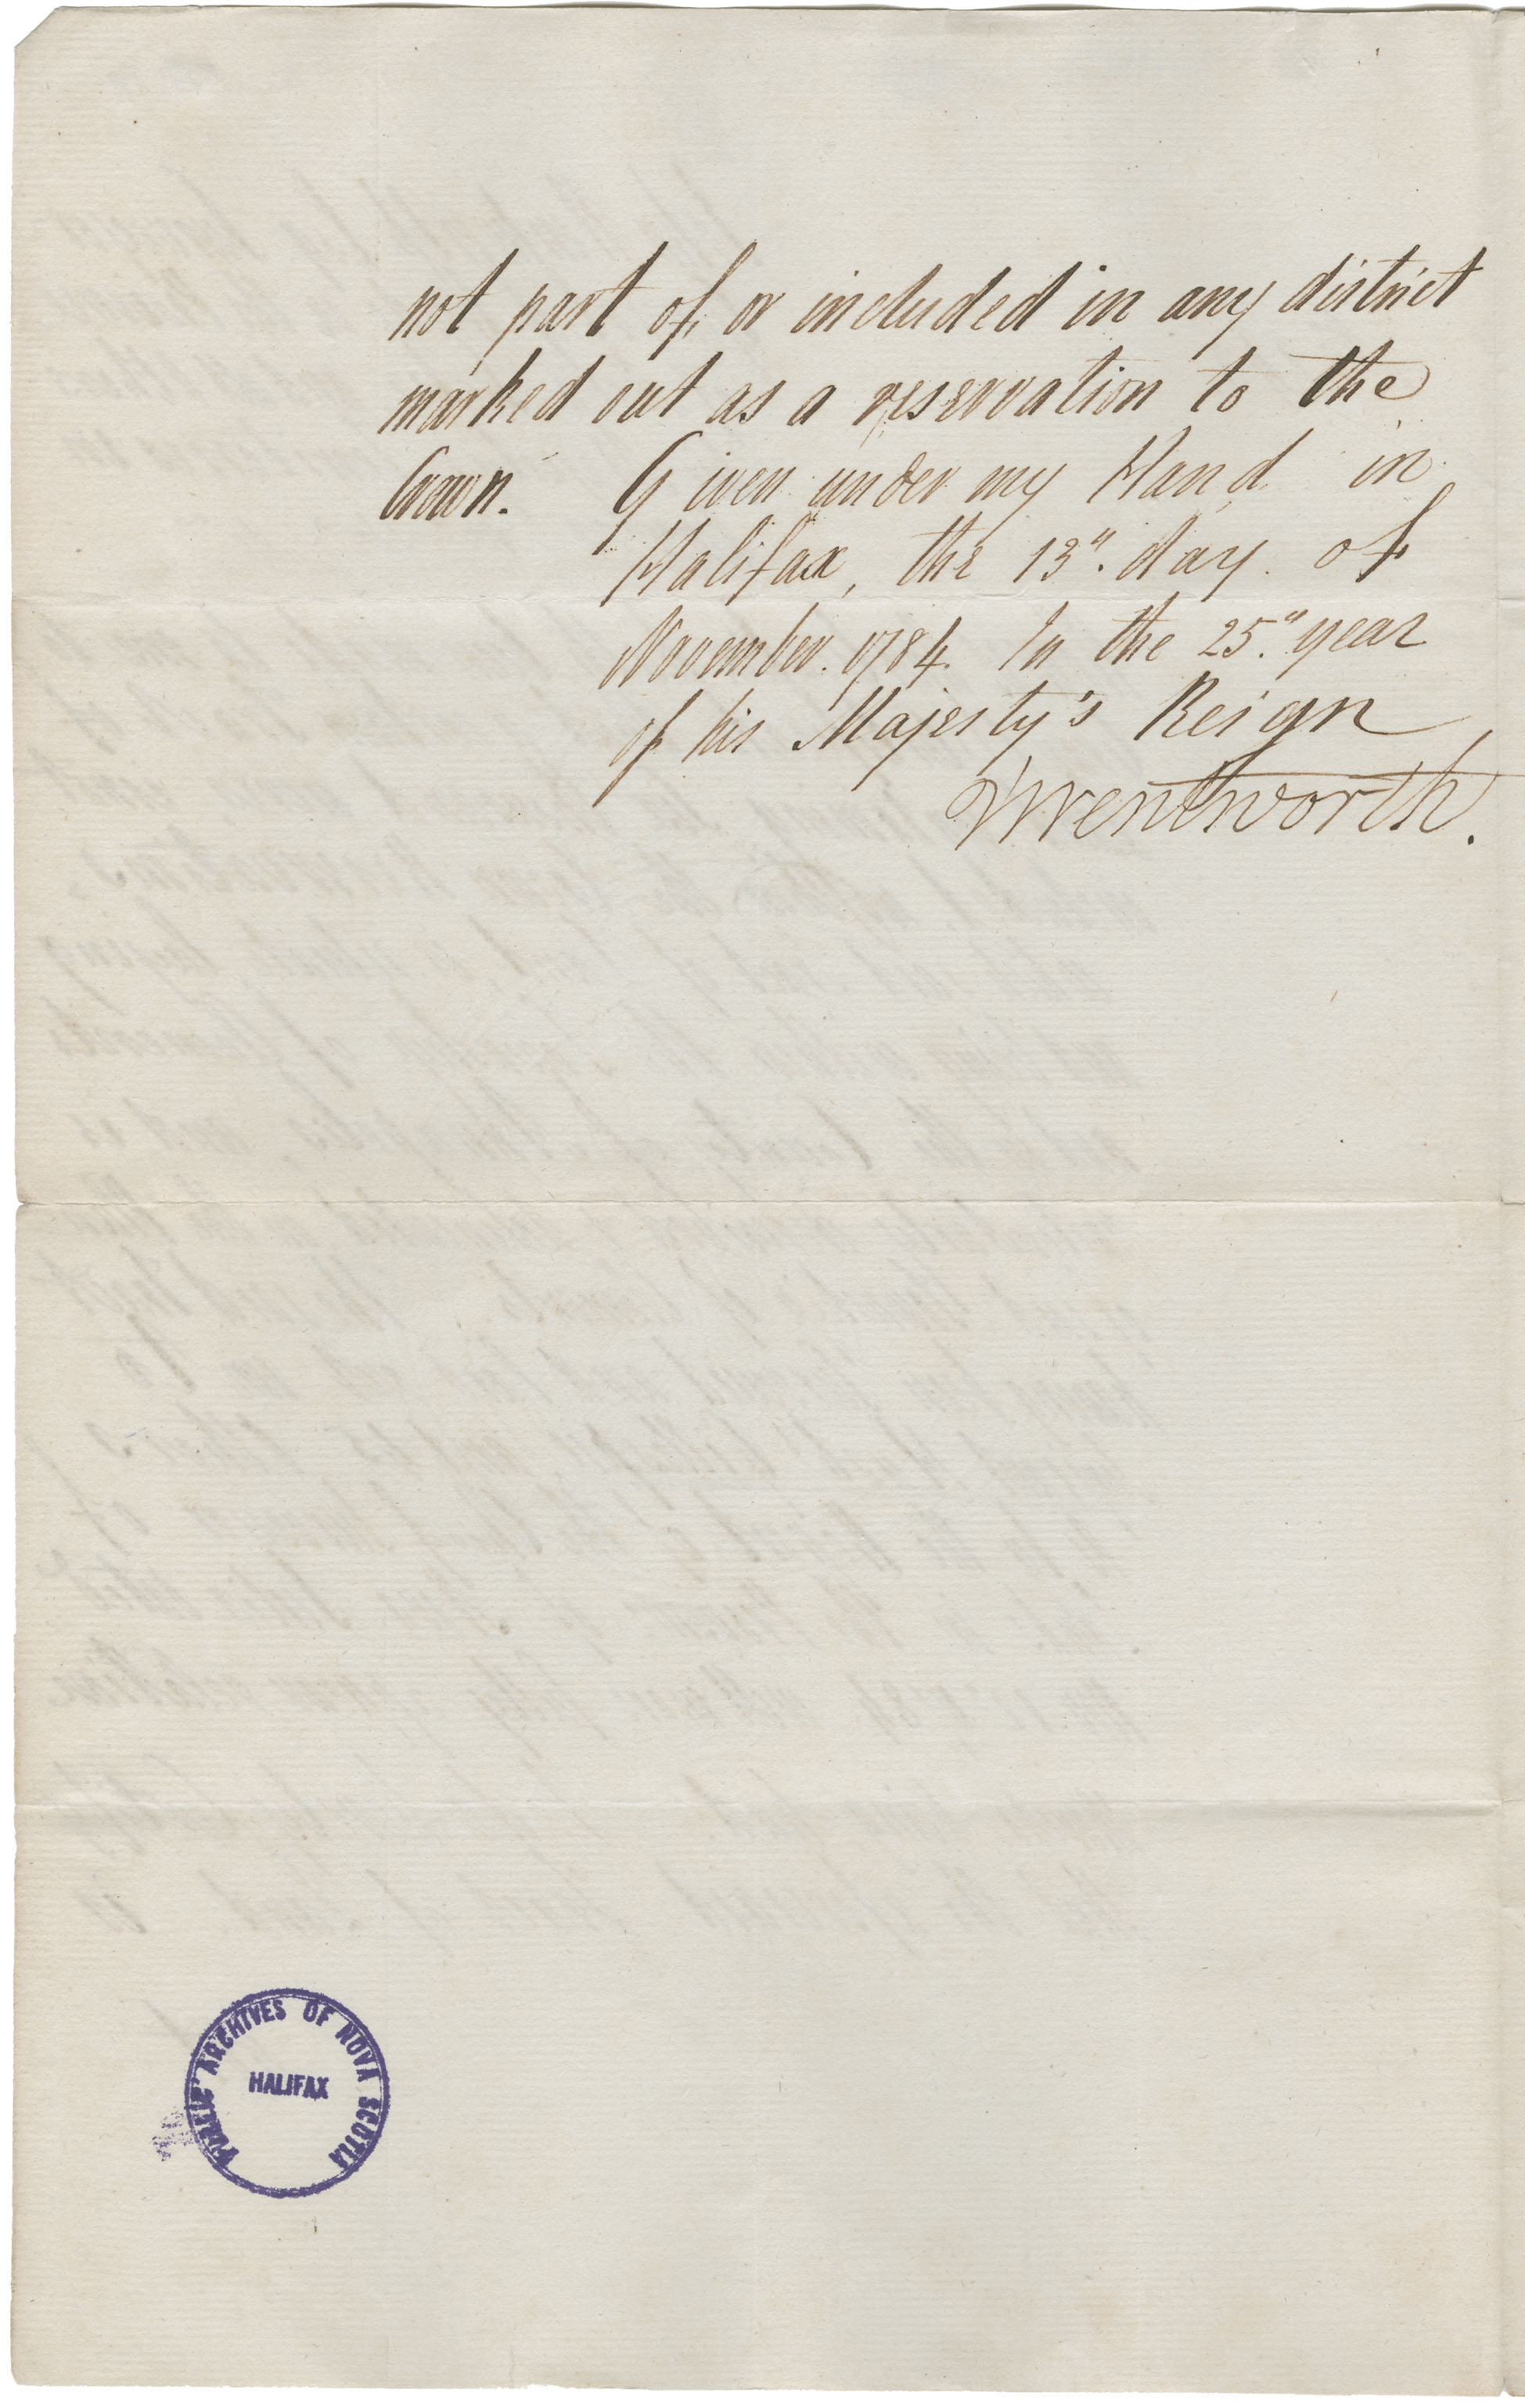 not part of, or included in any district
marked out as a reservation to the
Crown. Given under my Hand in
Halifax, the 13" day of
November. 1784. In the 25" year
of his Majesty's Reign
J Wentworth.
PUBLIC ARCHIVES OF NOVA SCOTIA
HALIFAX